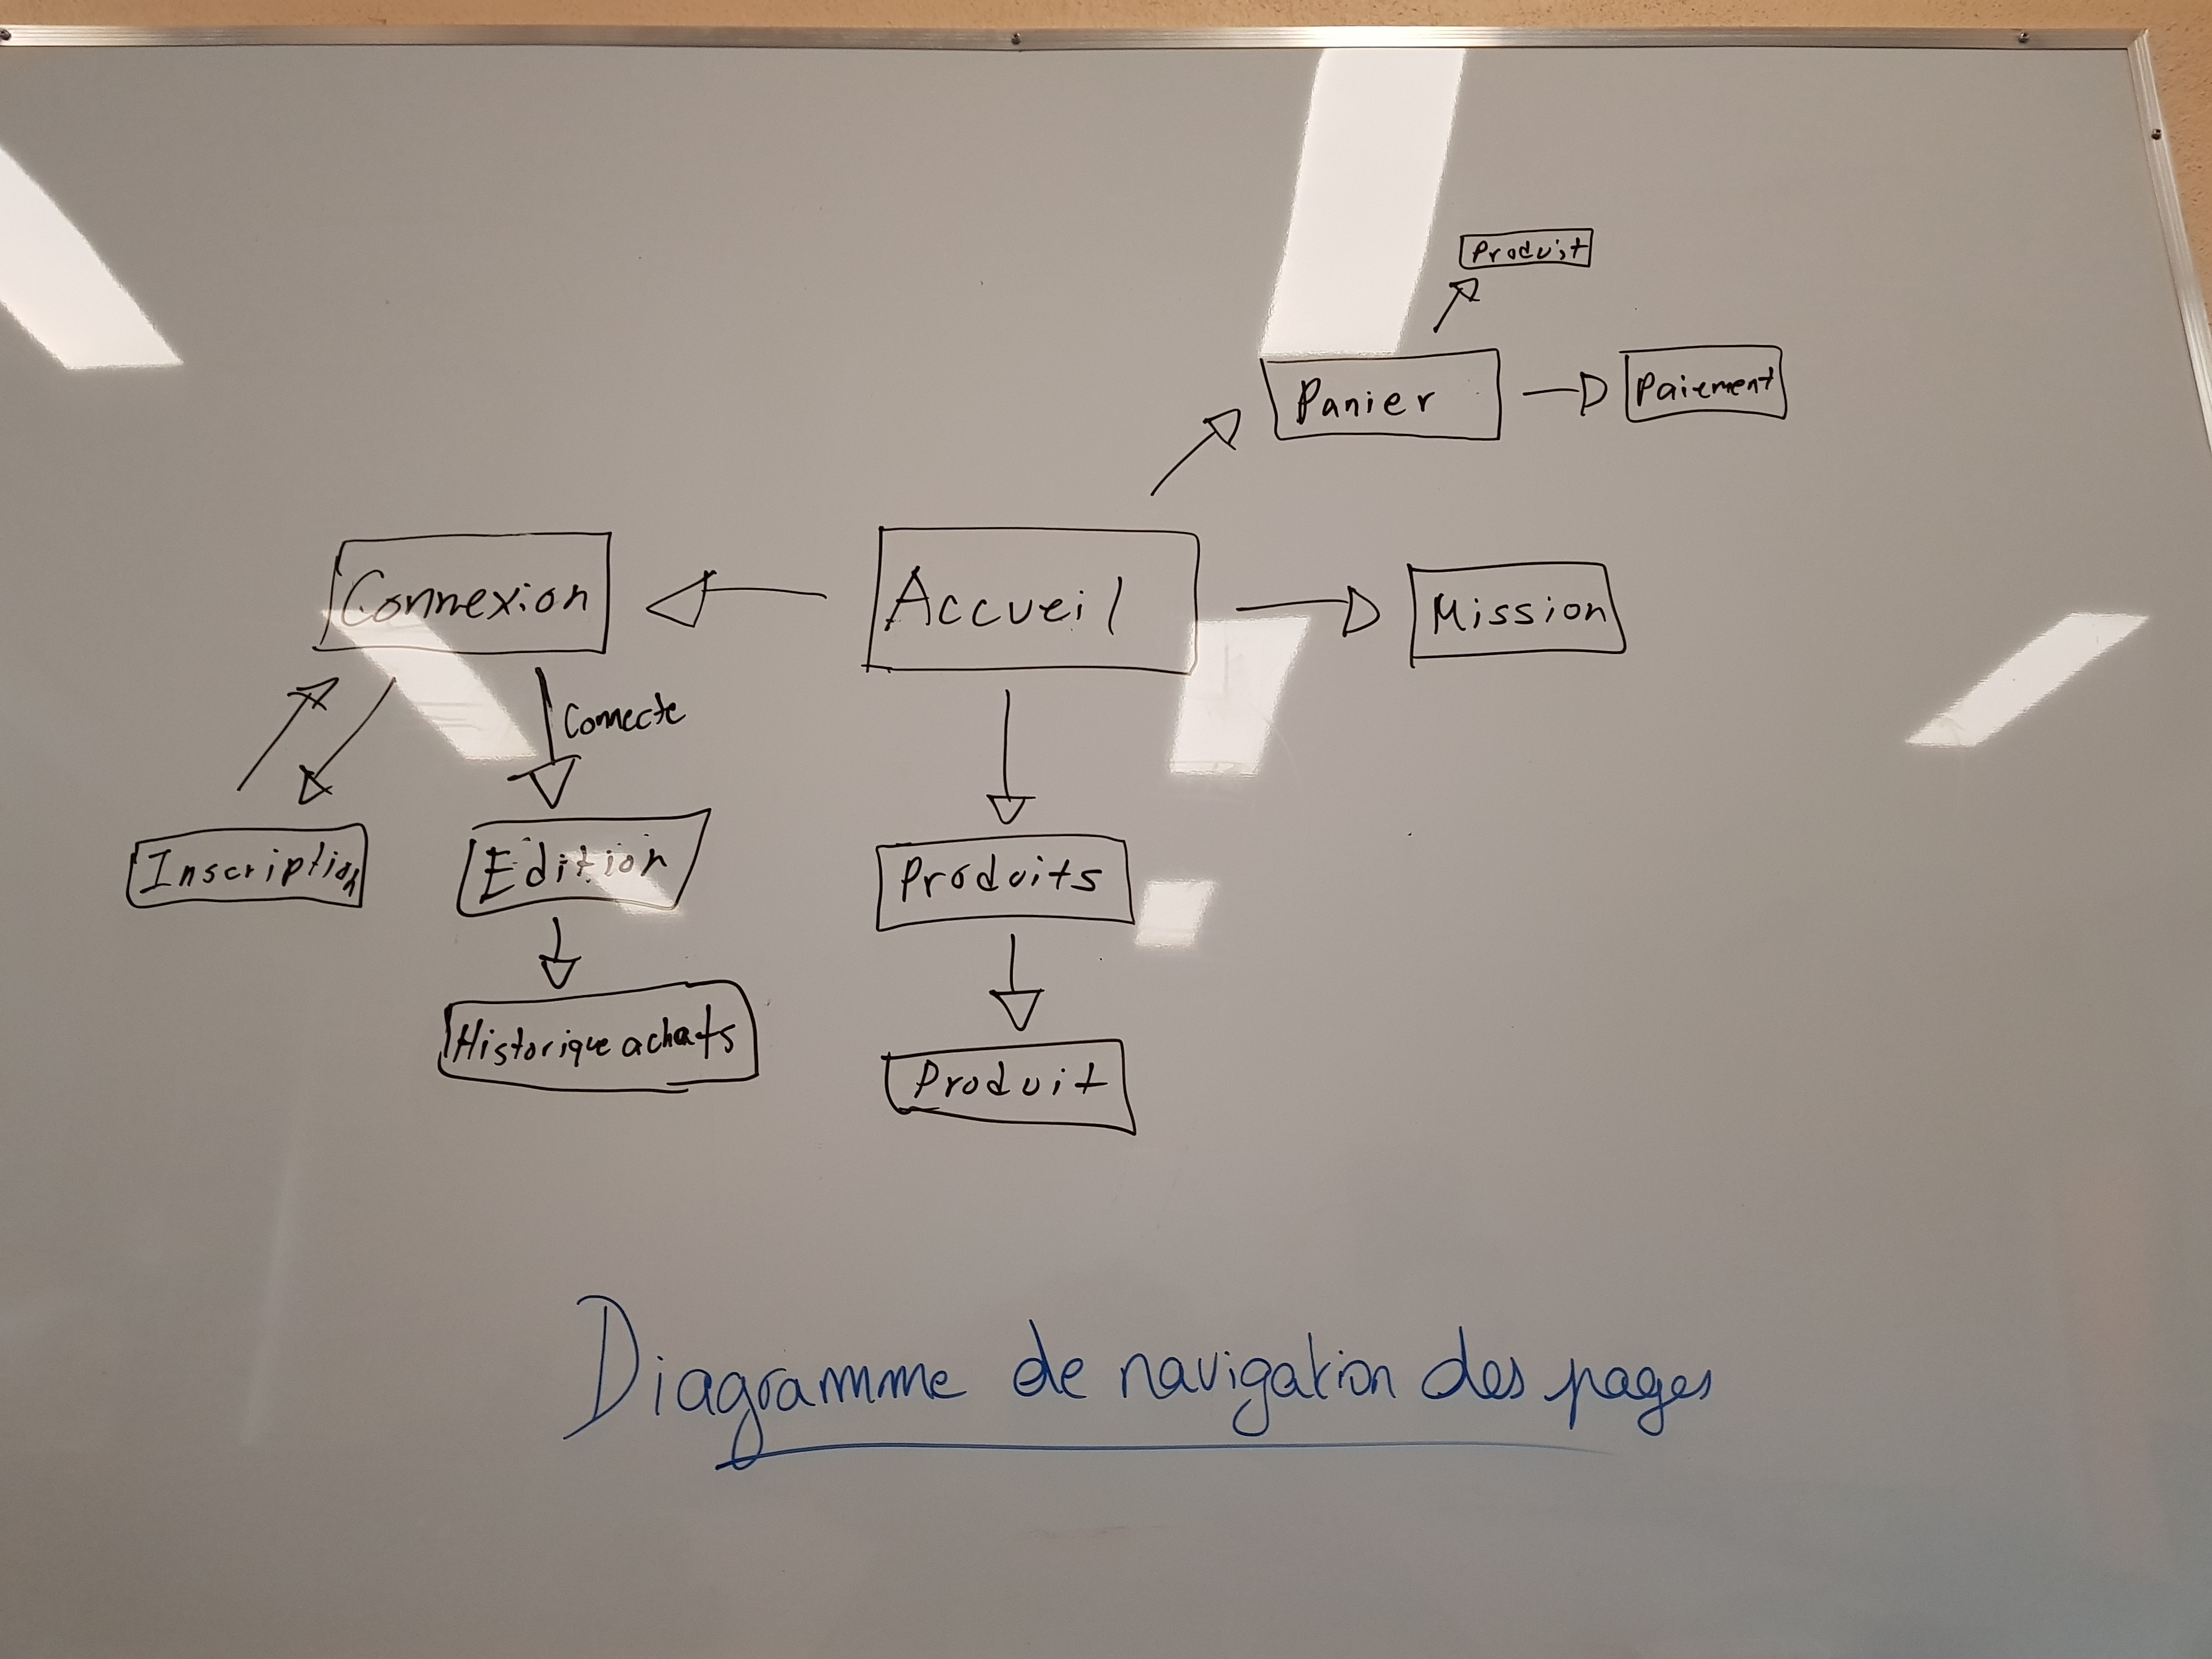 Produit
Panier
Paiement
Connexion
Accueil
Mission
Connecte
Inscription
Edition
Produits
Historique achats
Produit
Diagramme de navigation des pages